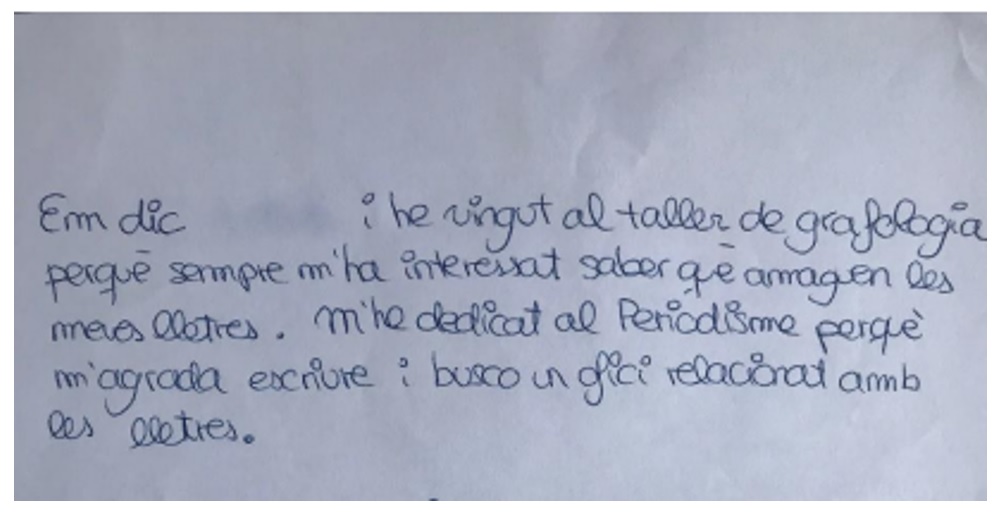 Em dic i he vingut al taller de grafologia
perquè sempre m'ha interessat saber què amaguen les
meves lletres. M'he dedicat al Periodisme perquè
m'agrada escriure i busco un ofici relacionat amb
les lletres.